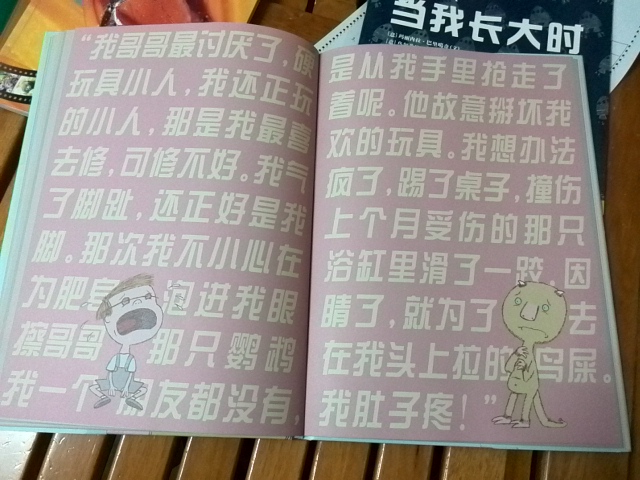 当我长大时
“我哥哥最讨厌了，硬是从我手里抢走了
玩具小人，我还正玩着呢。他故意掰坏我
的小人，那是我最喜欢的玩具。我想办法
去修，可修不好。我气疯了，踢了桌子，撞伤
了脚趾，还正好是我上个月受伤的那只
脚。那次我不小心在浴缸里滑了一跤，因
为肥皂进我眼睛了，就为了去
擦哥哥那只鹦鹉在我头上拉的鸟屎。
我一个朋友都没有，我肚子疼！”